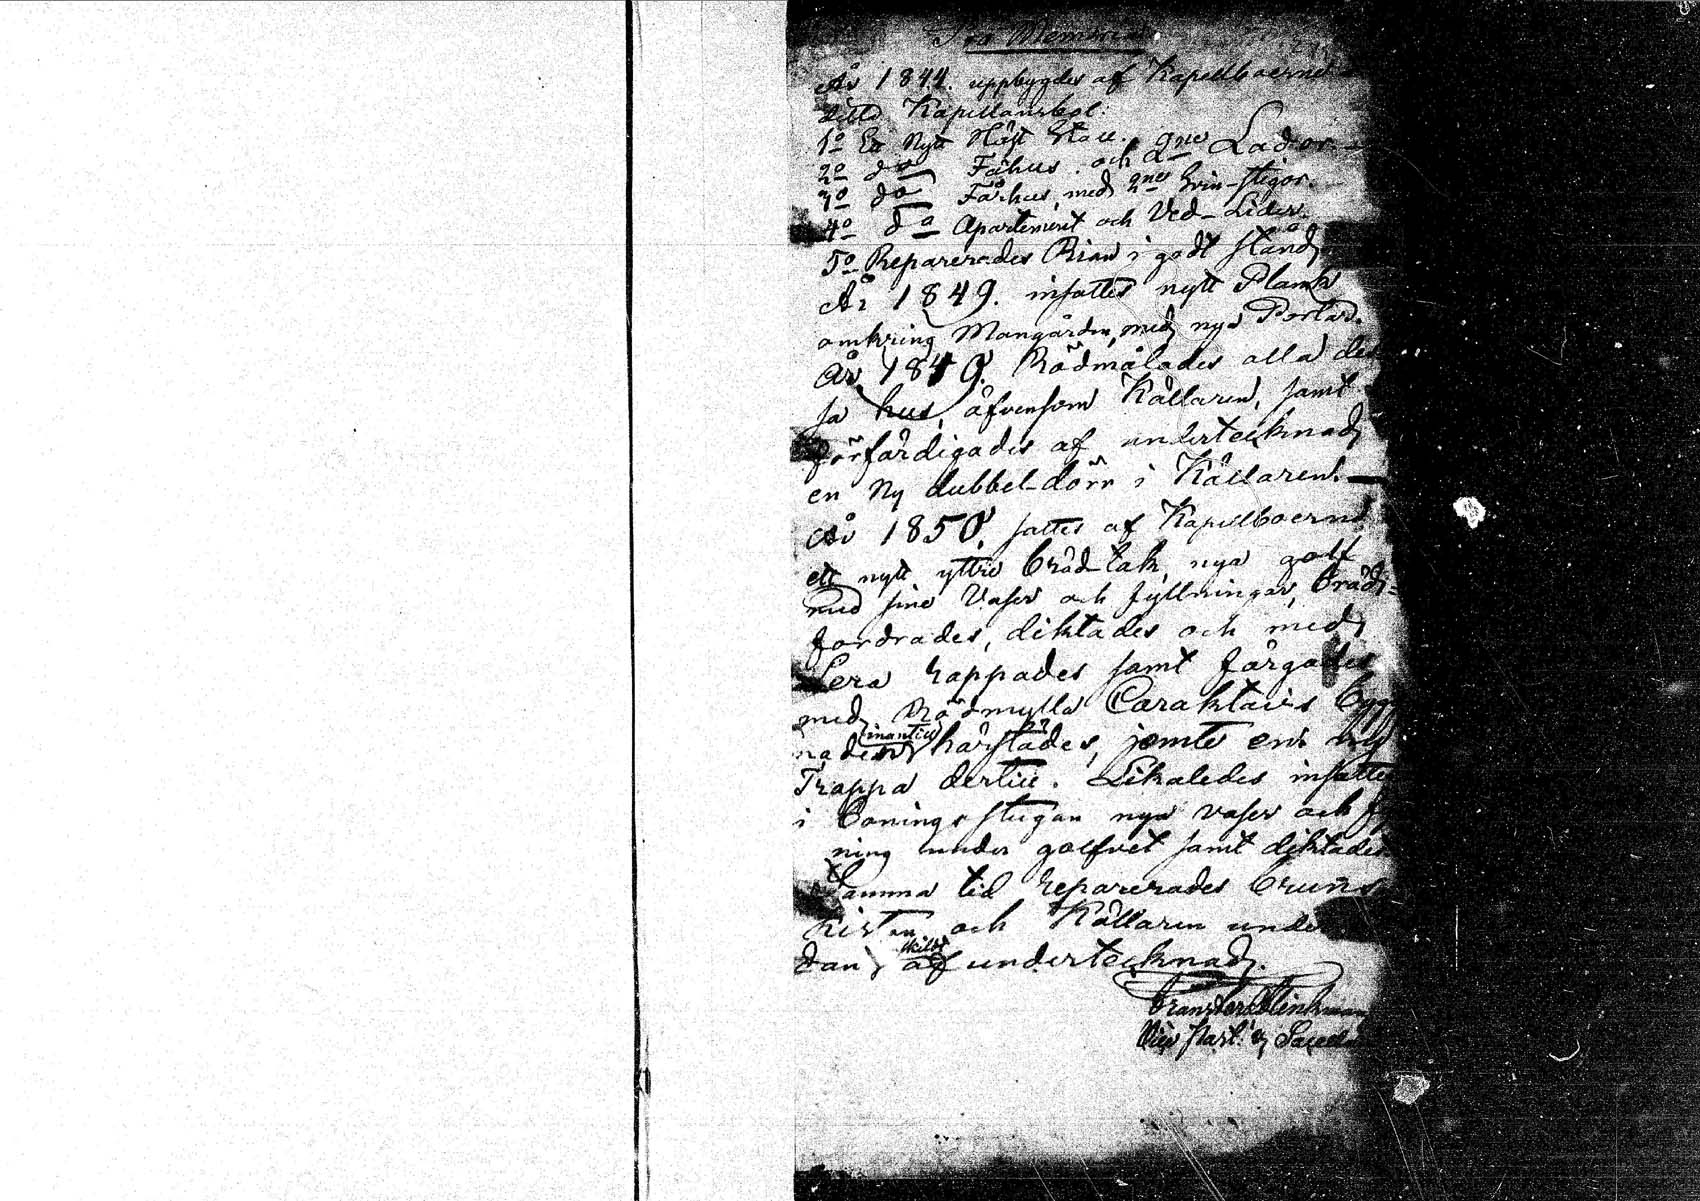 Pro Memoria
År 1844. uppbygdes af Kapellboerne
detta Kapellansbol:
1o Ett Nytt Häst Stall.
2o do Fähus. och 2ne Lador.
3o do Fårhus, med 2nes Svin-stigor.
4o do Apartement och Ved-Lider.
5o Reparerades Rian i godt stånd
År 1849. insattes nytt Plank
omkring Mangården, med nya Portar.
År 1849. Rödmålades alla des
sa hus, äfvensom Källaren, samt
förfärdigades af undertecknad
en Ny dubbel-dörr i Källaren.
År 1850, sattes af Kapellboerne
ett nytt yttre bräd-tak, nya golf
med sine Vaser och fyllningar, bräd-
fordrades, diktades och med
Lera rappades samt färgades
med Rödmylla Caraktairs bygg
naden, jemte en ny
Trappa dertill. Likaledes insattes
i Boningsstugan nya vaser och fy
ning under golfvet samt diktades
Samma tid reparerades bruns
kistan och Källaren unde
dan af undertecknad.